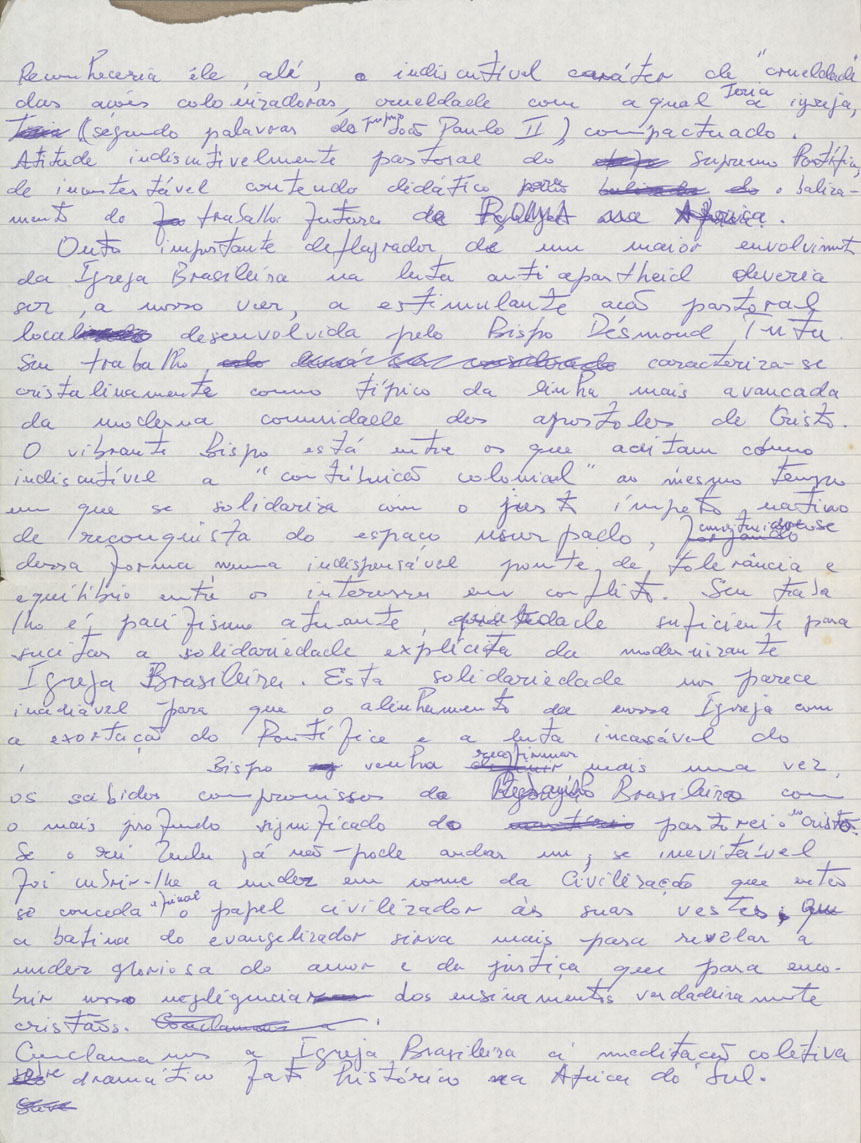 Reconheceria êle, até, o indiscutível caráter de "crueldade"
das ações colonizadoras, crueldade com a qual teria a igreja,
(segundo palavras do papa João Paulo II), compactuado.
Atitude indiscutivelmente pastoral do Supremo Pontífice,
de incontestável conteúdo didático o baliza-
mento do trabalho futuro de ROMA na Africa.
Outo importante deflagrador de um maior envolvimento
da Igreja Brasileira na luta anti apartheid deveria
ser, a nosso ver, a estimulante ação pastoral
local desenvolvida pelo Bispo Désmond Tutu.
Seu trabalho, caracteriza-se
cristalinamente como típico da linha mais avancada
da moderna comunidade dos apostoles de Cristo.
O vibrante Bispo está entre os que aceitam como
indiscutível a "contribuicão colonial" ao mesmo tempo
em que se solidariza com o justo ímpeto nativo
de reconquista do espaço usurpado, construindo-se
dessa forma numa indispensável ponte de tolerância e
equilíbrio entre os interesses em conflito. Seu traba
lho é pacifismo atuante, suficiente para
sucitar a solidariedade explícita da modernizante
Igreja Brasileira. Esta solidariedade nos parece
inadiável para que o alinhamento da nossa Igreja com
a exortação do Pontífice e a luta incansável do
Bispo venha reafirmar mais uma vez,
os sabidos compromissos do Brasileiro com
o mais profundo significado do pastoreio no Cristo.
Se o rei Zulu já não-pode andar nu, se inevitável
foi cubrir-lhe a nudez em nome da Civilização que então
se conceda afinal o papel civilizador às suas vestes, que
a batina do evangelizador sirva mais para revelar a
nudez gloriosa do amor e da justiça que para enco-
brir nossa negligência dos ensinamentos verdadeiramente
cristãos.
Conclamamos a Igreja Brasileira à meditação coletiva
sobre dramático fato histórico na Africa do Sul.